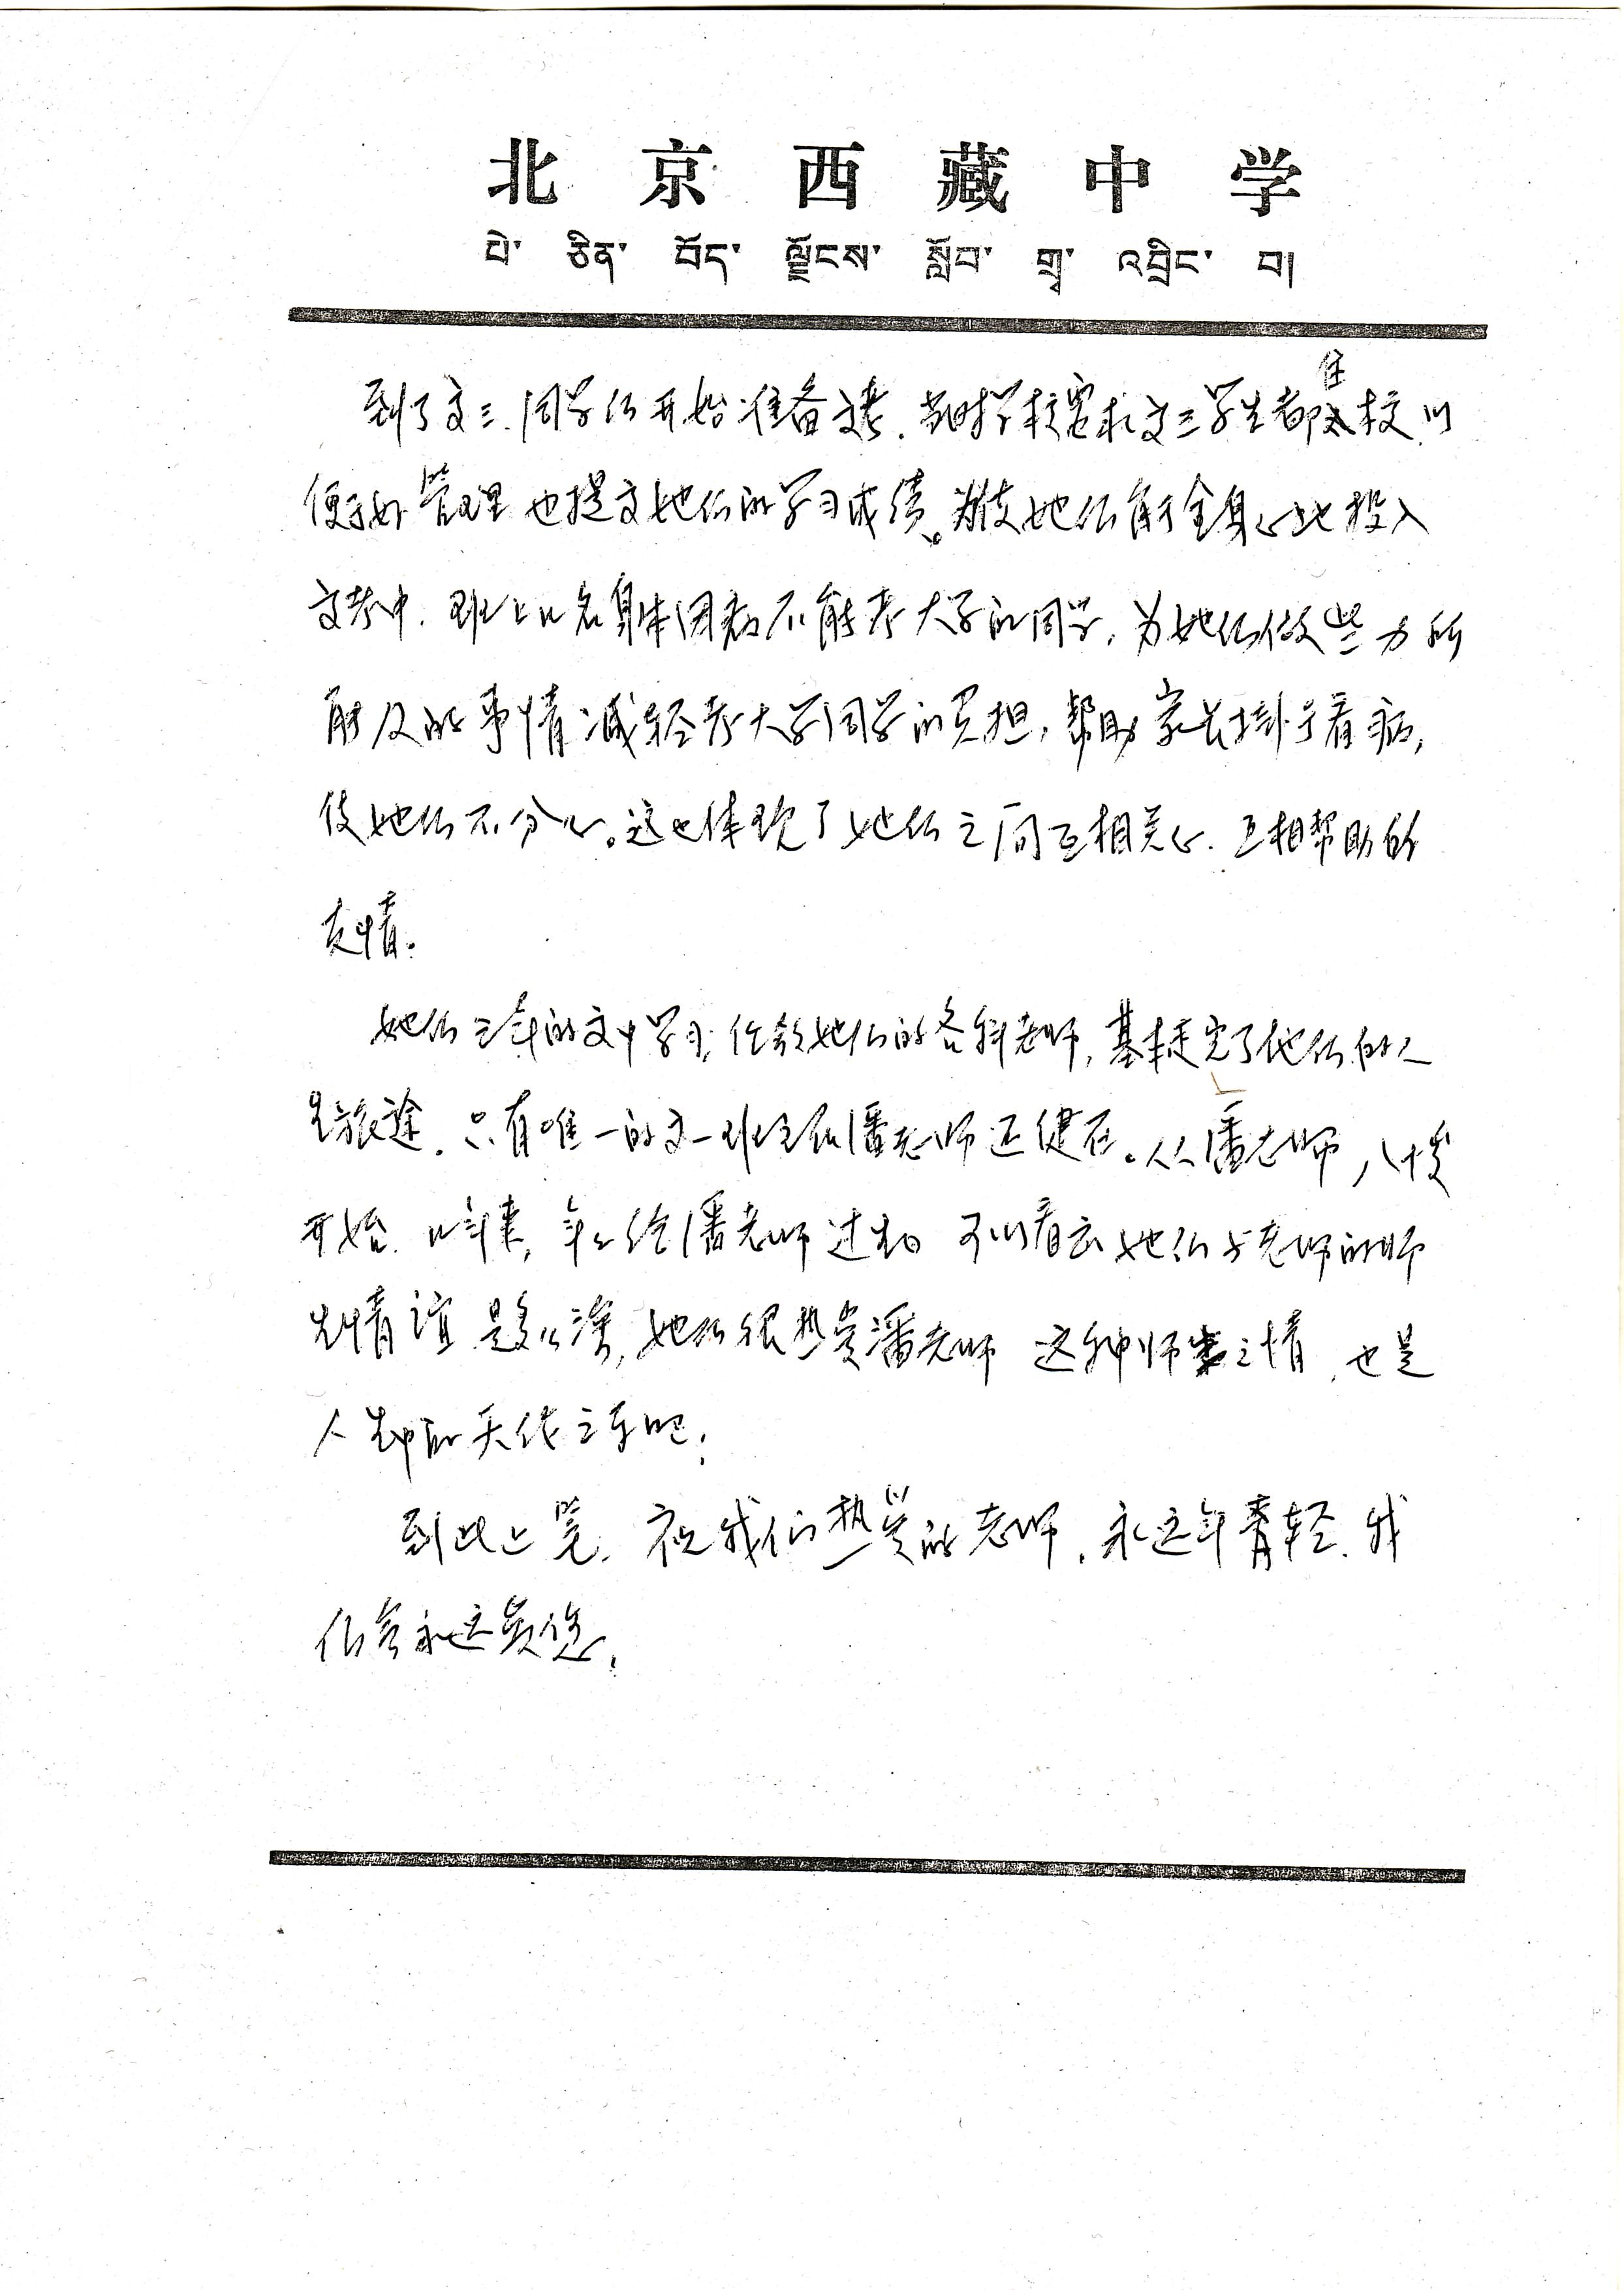 北京西藏中学
པེ་ ཅིན་ བོད་ ལྗོངས་ སློབ་ གྲྭ་ འབྲིང་ བ།
到了高三.同学们开始准备高考.当时学校要求高三学生都住校.以
便于好管理也提高她们的学习成绩。为使她们能全身心地投入
高考中.班上几名身体因病不能考大学的同学,为她们做些力所
能及的事情减轻考大学同学的负担,帮助家长挂号看病,
使她们不分心。这也体现了她们之间互相关心.互相帮助的
友情。
她们三年的高中学习,任教她们的各科老师,基本走完了他们的人
生旅途.只有唯一的高一班主任潘老师还健在。从潘老师八十岁
开始.几年来,年年给潘老师过生日 可以看出她们与老师的师
生情谊是多么深,她们很热爱潘老师 这种师生之情,也是
人生中的天伦之乐吧.
到此止笔.祝我们热爱的老师.永远年青轻.我
们会永远爱您.